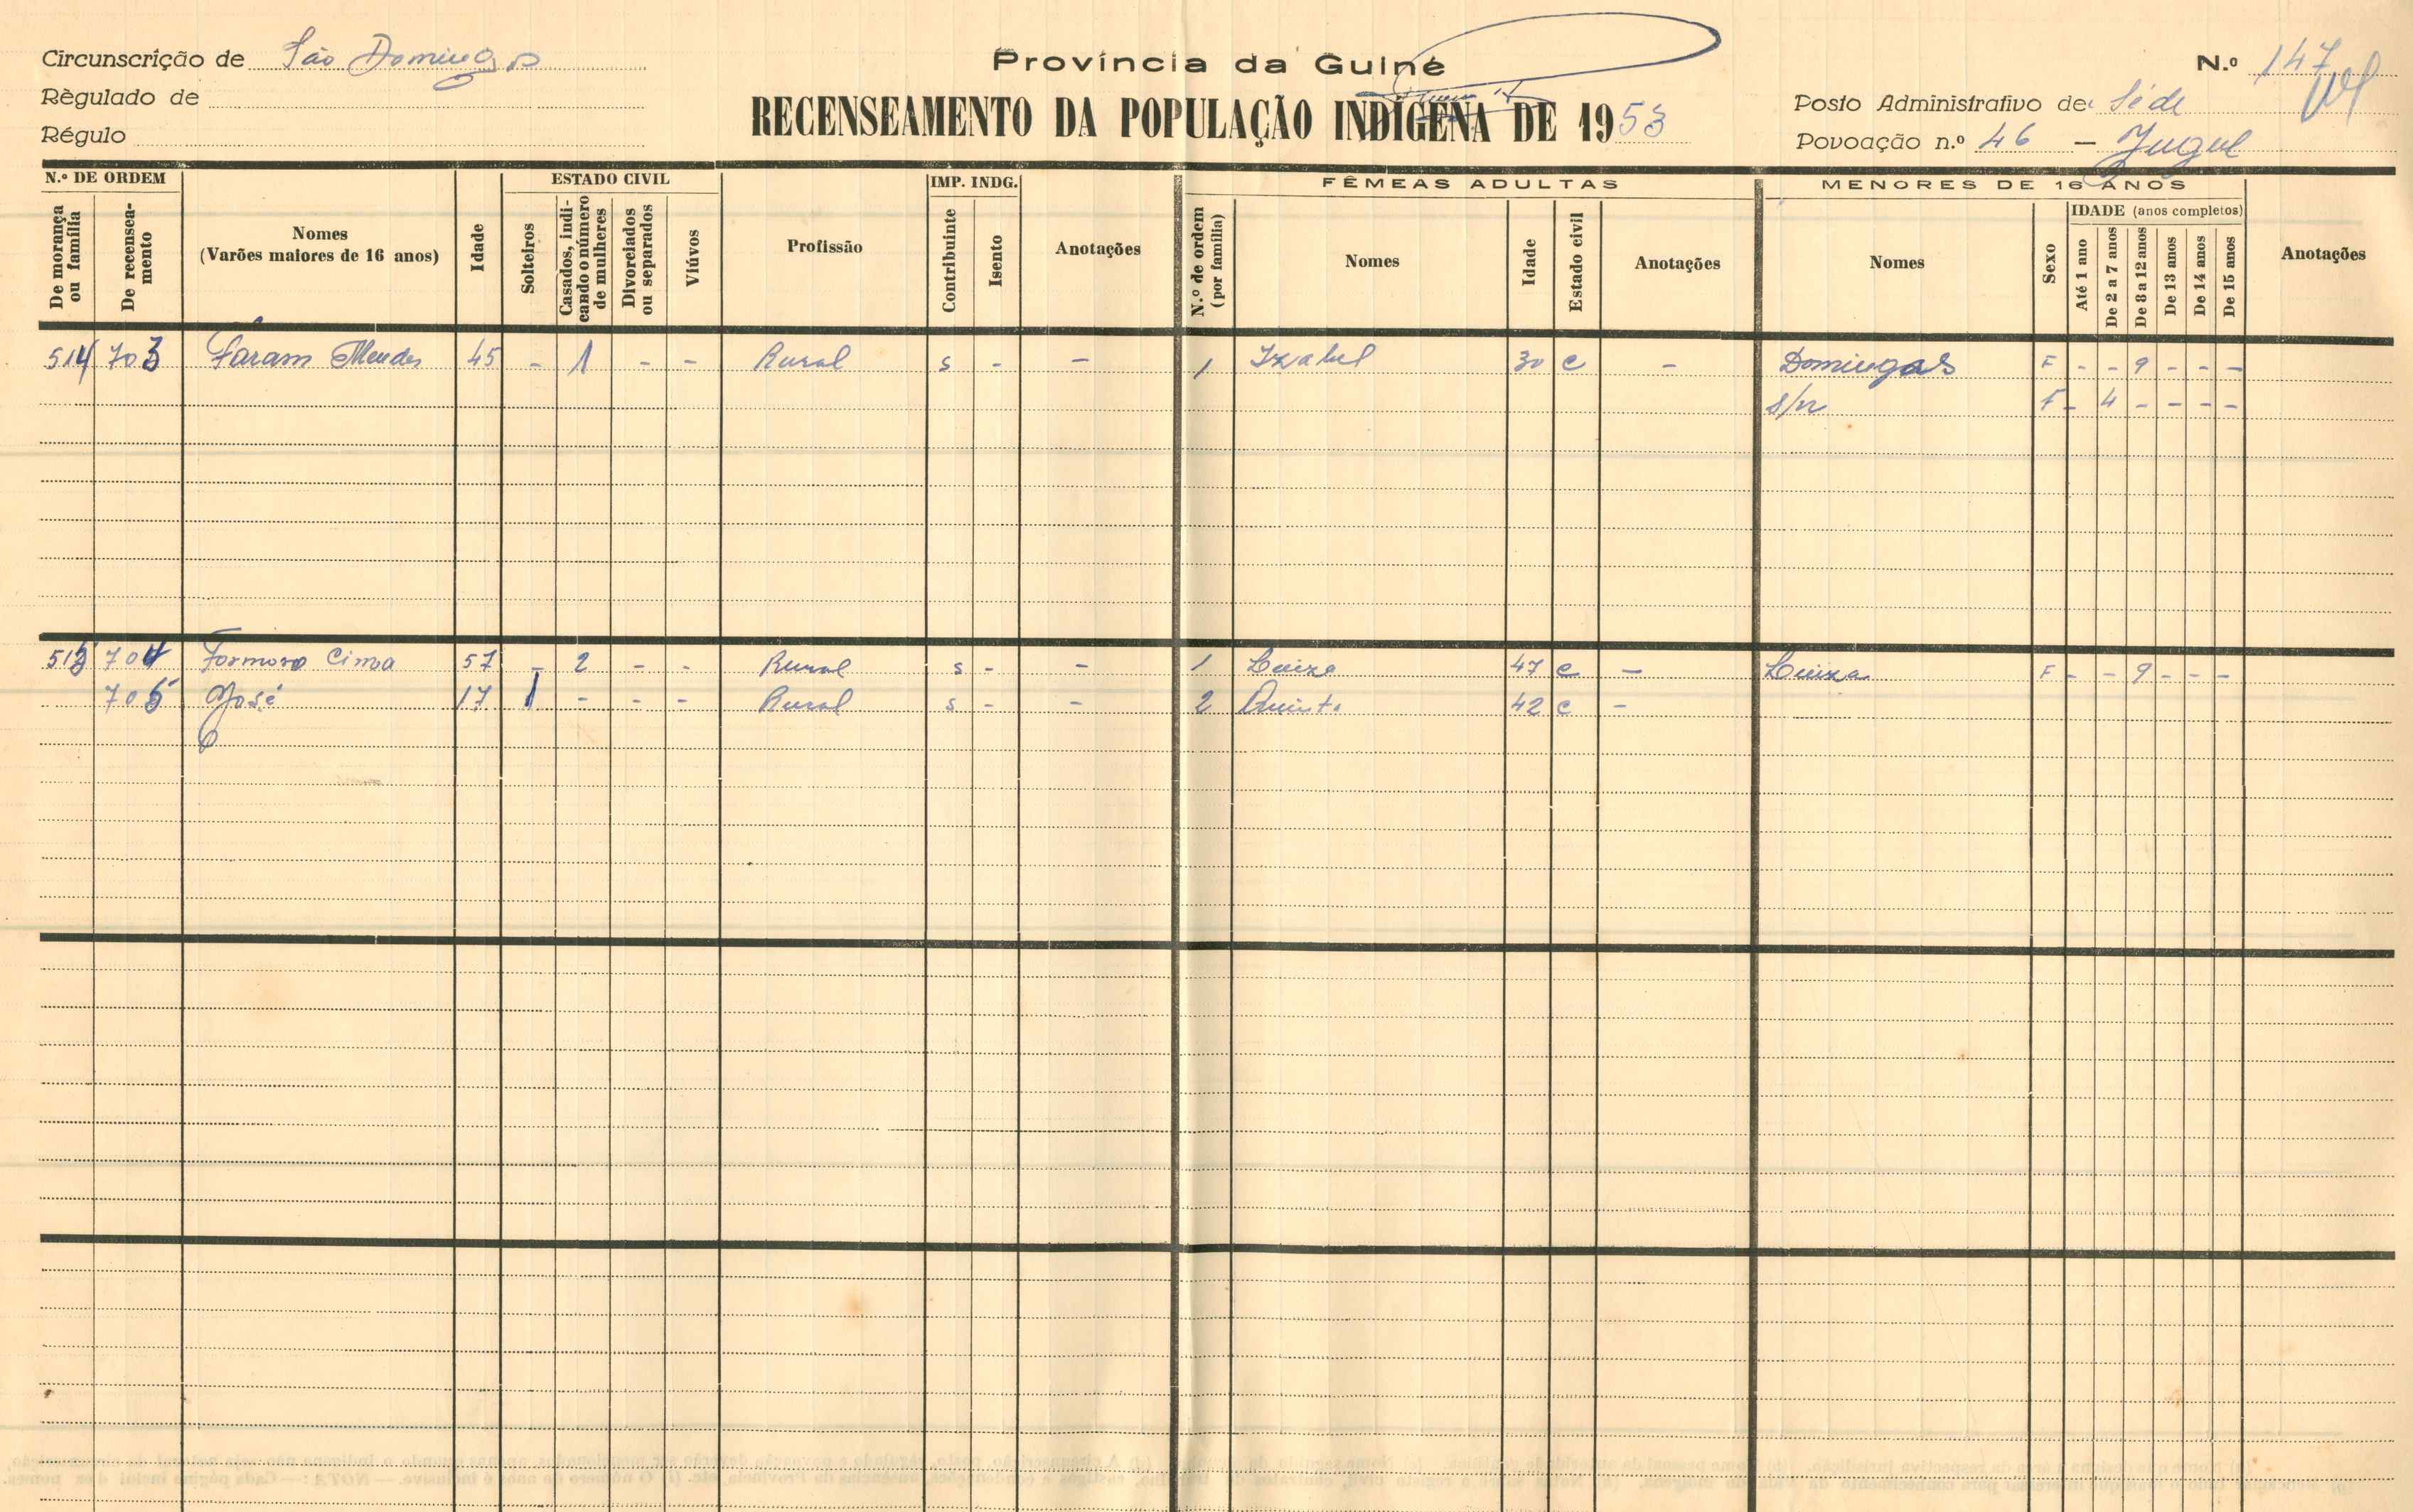 Circunscrição de São Domingos
Règulado de
Régulo
Província da Guiné
RECENSEAMENTO DA POPULAÇÃO INDÍGENA DE 1953
N.º 147
Posto Administrativo de Séde
Povoação n.º 46 - Jugul
N.º DE ORDEM
De morança ou família
De recenseamento
Nomes
(Varões maiores de 16 anos)
Idade
ESTADO CIVIL
Solteiros
Casados, indicando o número de mulheres
Divorciados ou separados
Viúvos
Profissão
IMP. INDG.
Contribuinte
Isento
Anotações
FÊMEAS ADULTAS
N.º de ordem (por família)
Nomes
Idade
Estado civil
Anotações
MENORES DE 16 ANOS
Nomes
Sexo
IDADE (anos completos)
Até 1 ano
De 2 a 7 anos
De 8 a 12 anos
De 13 anos
De 14 anos
De 15 anos
Anotações
514 703 Faram Mendes 45 - 1 - - Rural s - - 1 Izabel 30 c - Domingas F - - 9 - - -
s/n F - 4 - - - -
515 704 Formoso Cima 57 - 2 - - Rural s - - 1 Luiza 47 c - Luiza F - - 9 - - -
705 José 17 1 - - - Rural s - - 2 Quinta 42 c -